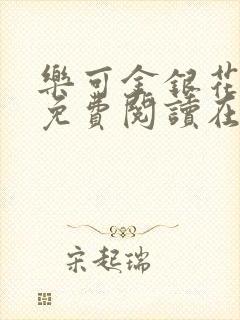 樂可金銀花
免費閱讀在
宋起瑞